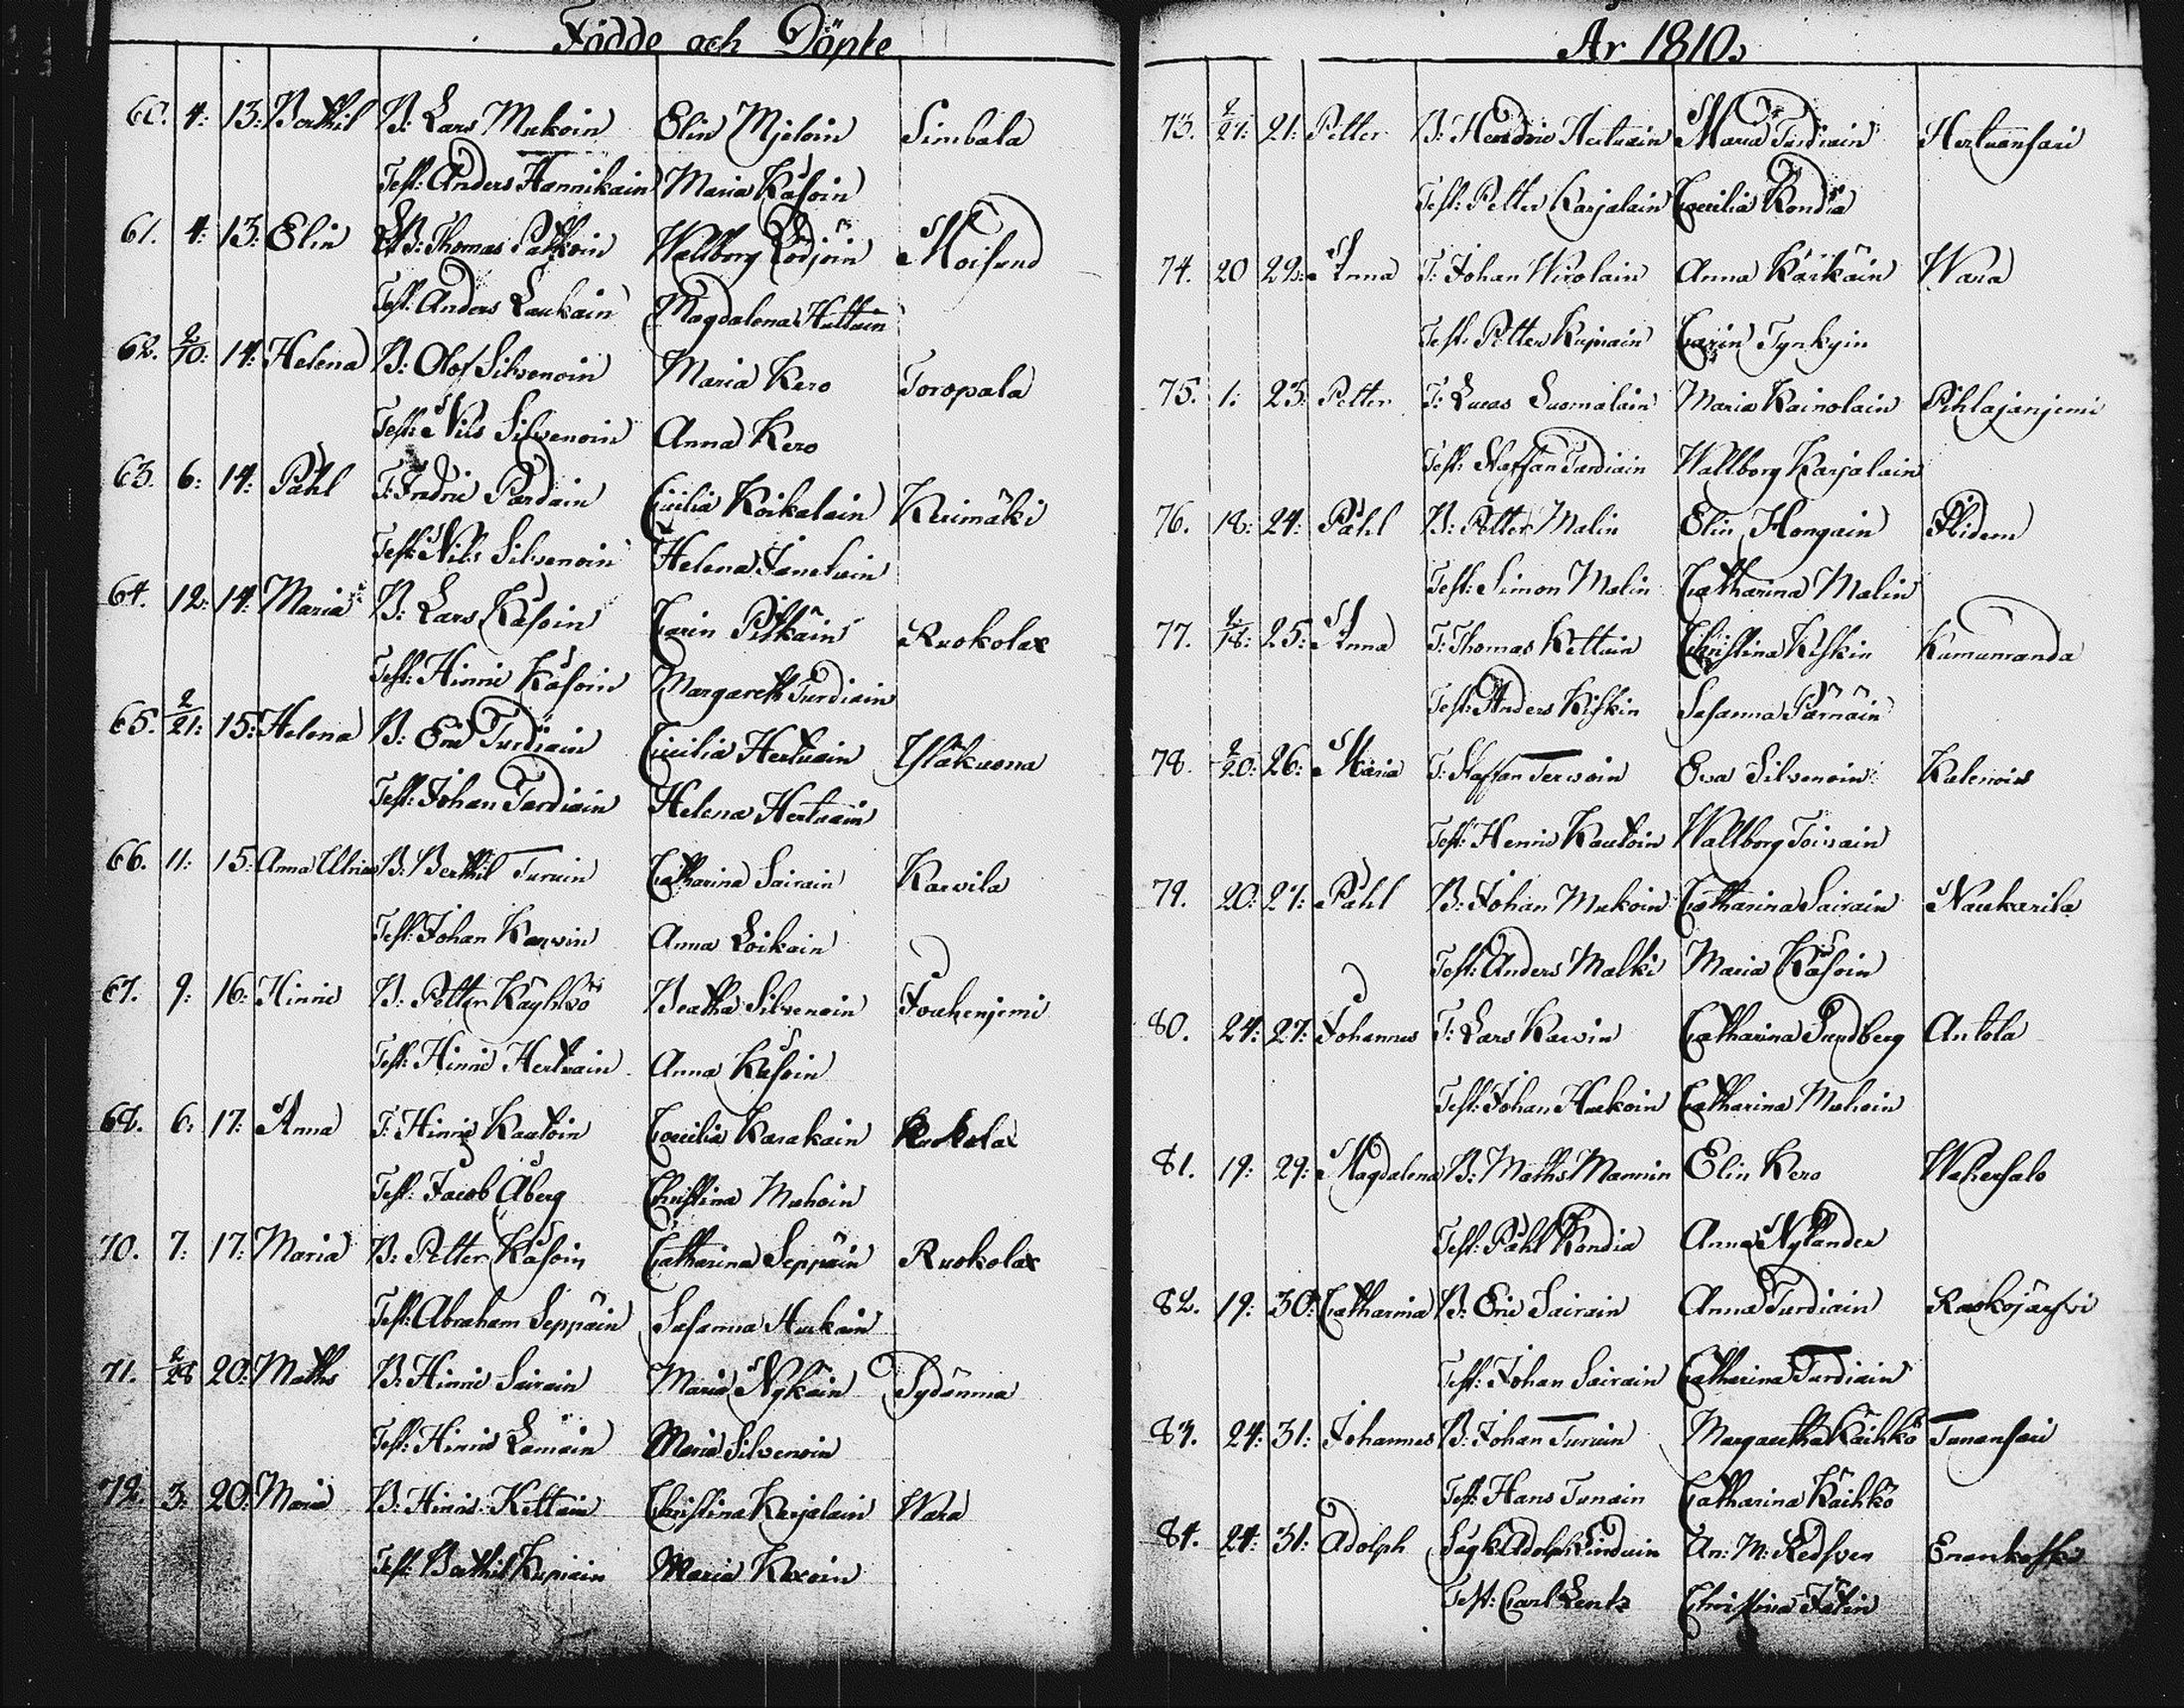 Födde och Döpte
60. 4: 13: Berthil B: Lars Mukoin Elin Mjeloin Simbala
Test: Anders Hannikain Maria Kåsoin
61. 4: 13: Elin B: Thomas Wallborg Moisund
Test: Anders Laukain Magdalena Huttuin
62. 2/10: 14: Helena B: Olof Silvenoin Maria Kero Toropala
Test: Nils Silvenoin Anna Kero
63. 6: 14: Påhl T: Fredric Pardain Cicilia Koikalain Kerimäki
Test: Nils Silvenoin Helena
64. 12: 14: Maria B: Lars Kåsoin Carin Pitkäin Ruokolax
Test: Hinric Kåsoin Margareth Turdiain
65. 2/21: 15: Helena B: Eric Turdiain Cicilia Hertuain
Test: Johan Tardiain Helena Hertuain
66. 11: 15: Anna Ulrica B: Berthil Turuin Catharina Sairain Karvila
Test: Johan Karvin Anna Loikain
67. 9: 16: Hinric B: Petter Käyhkö Beatha Silvenoin Jouhenjemi
Test: Hinric Hertuain Anna Kåsoin
68. 6: 17: Anna T: Hinric Kautoin Coecilia Karakain Ruokolax
Test: Jacob Åberg Christina Muhoin
70. 7: 17: Maria B: Petter Kåsoin Catharina Seppäin Ruokolax
Test: Abraham Seppäin Susanna Huckain
71. 2/28 20: Maths B: Hinric Sairain Maria Nykäin Sydänma
Test: Hinric Lamäin Maria Silvenoin
72. 3: 20: Maria B: Hinric Kettuin Christina Karjalain Wara
Test: Berthil Kupiain Maria Kexoin
År 1810.
73. 2/27: 21: Petter B: Hendric Hertuain Maria Turdiain Hertuansari
Test: Petter Karjalain Coecilia Kondia
74. 20 22: Anna T: Johan Wirolain Anna Kärkäin Wara
Test: Petter Kupiain Carin Tynkyin
75. 1: 23: Petter T: Lucas Suomalain Maria Kainolain Pihlajanjemi
Test: Staffan Turdiain Wallborg Karjalain
76. 18: 24: Påhl B: Petter Malin Elin Hongain
Test: Simon Malin Catharina Malin
77. 2/18: 25: Anna T: Thomas Kettuin Christina Kiskin Kumumranda
Test: Anders Kiskin Susanna Pärnäin
78. 2/20: 26: Maria T: Staffan Tervoin Eva Silvenoin
Test: Henric Kautoin Wallborg Toivain
79. 20: 27: Påhl B: Johan Mukoin Catharina Sairain Naukarila
Test: Anders Malki Maria Kåsoin
80. 24: 27: Johannes T: Lars Karvin Catharina Sundberg Antola
Test: Johan Huckoin Catharina Muhoin
81. 19: 29: Magdalena B: Maths Mannin Elin Kero Wehersalo
Test: Påhl Kondia Anna Nylander
82. 19: 30: Catharina B: Eric Sairain Anna Turdiain Raskojärfvi
Test: Johan Sairain Catharina Turdiain
83. 24: 31: Johannes B: Johan Turuin Margaretha Käihkö Tunansari
Test: Hans Tunain Catharina Käihkö
84. 24: 31: Adolph Adolph An: M: Redsven Enonkoski
Test: Carl Lentz Christina